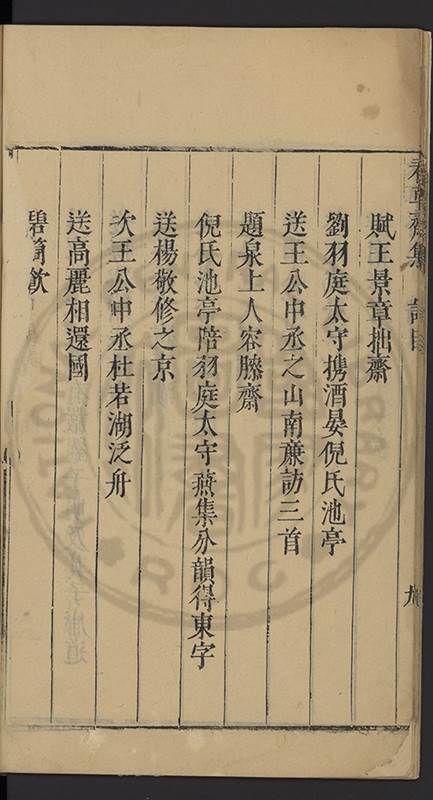 春草齋集 詩目
賦王景章拙齋
劉羽庭太守携酒晏倪氏池亭
送王公中丞之山南亷訪三首
題泉上人容膝齋
倪氏池亭陪羽庭太守燕集分韻得東字
送楊敬修之京
次王公中丞杜若湖泛舟
送高麗相還國
碧筩飲